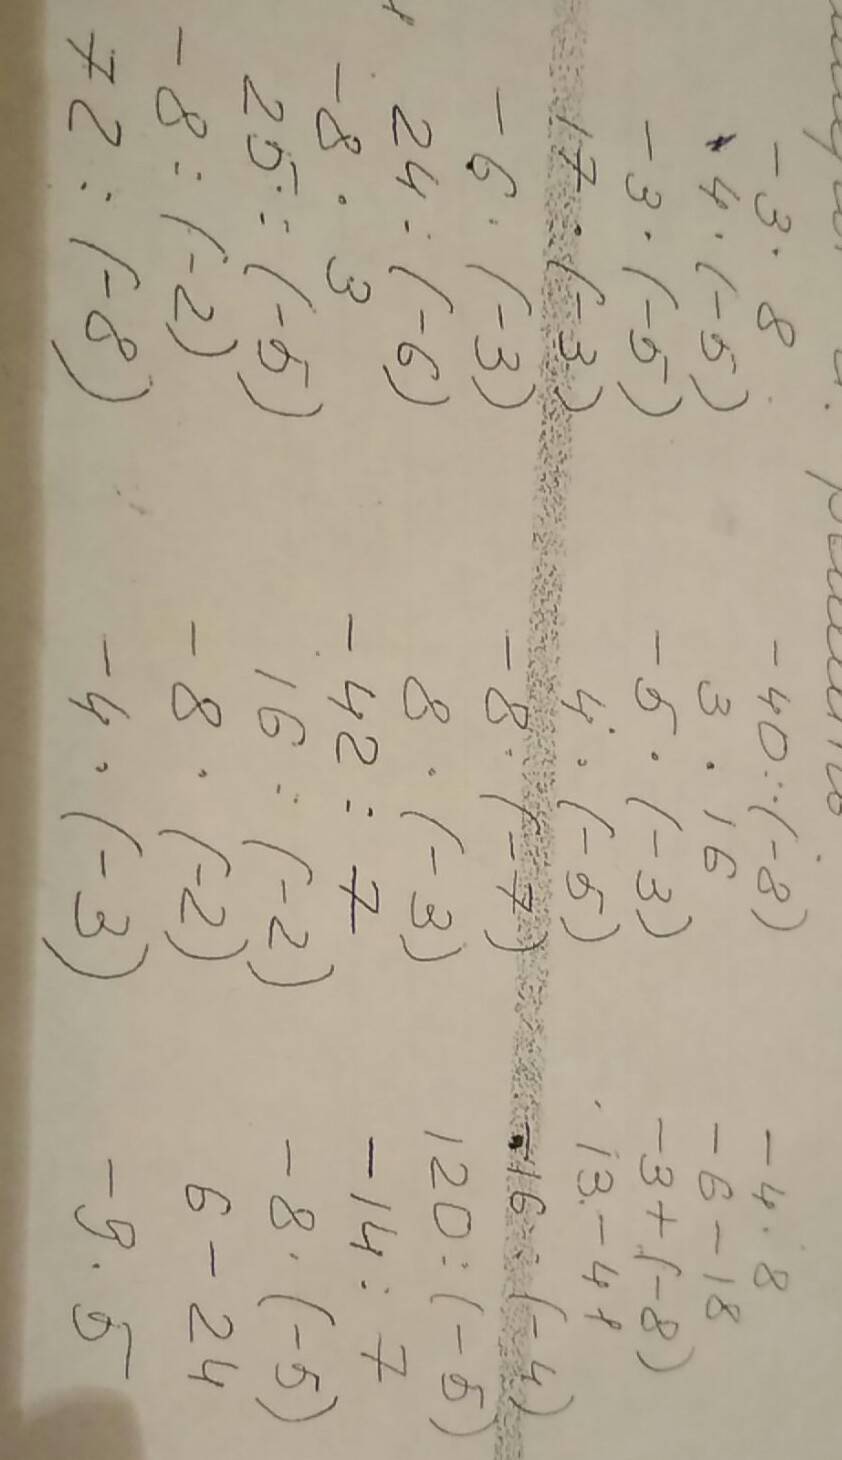 -3 · 8 -40 : (-8) -4 · 8
4 · (-5) 3 · 16 -6 - 18
-3 · (-5) -5 · (-3) -3 + (-8)
17 · (-3) 4 · (-5) 13 - 41
-6 · (-3) -8 · (-7) -16 : (-4)
24 : (-6) 8 · (-3) 120 : (-5)
-8 · 3 -42 : 7 -14 : 7
25 : (-5) 16 : (-2) -8 · (-5)
-8 : (-2) -8 · (-2) 6 - 24
72 : (-8) -4 · (-3) -9 · 5